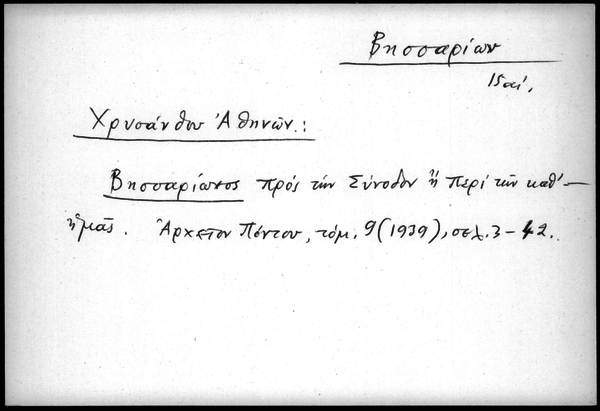 Βησσαρίων
15 αἰ.
Χρυσάνθου Ἀθηνῶν.:
Βησσαρίωνος πρός τήν Σύνοδον ἤ περί τῶν καθ'—
ἡμᾶς. Ἀρχεῖον Πόντου, τόμ. 9 (1939), σελ. 3-42.